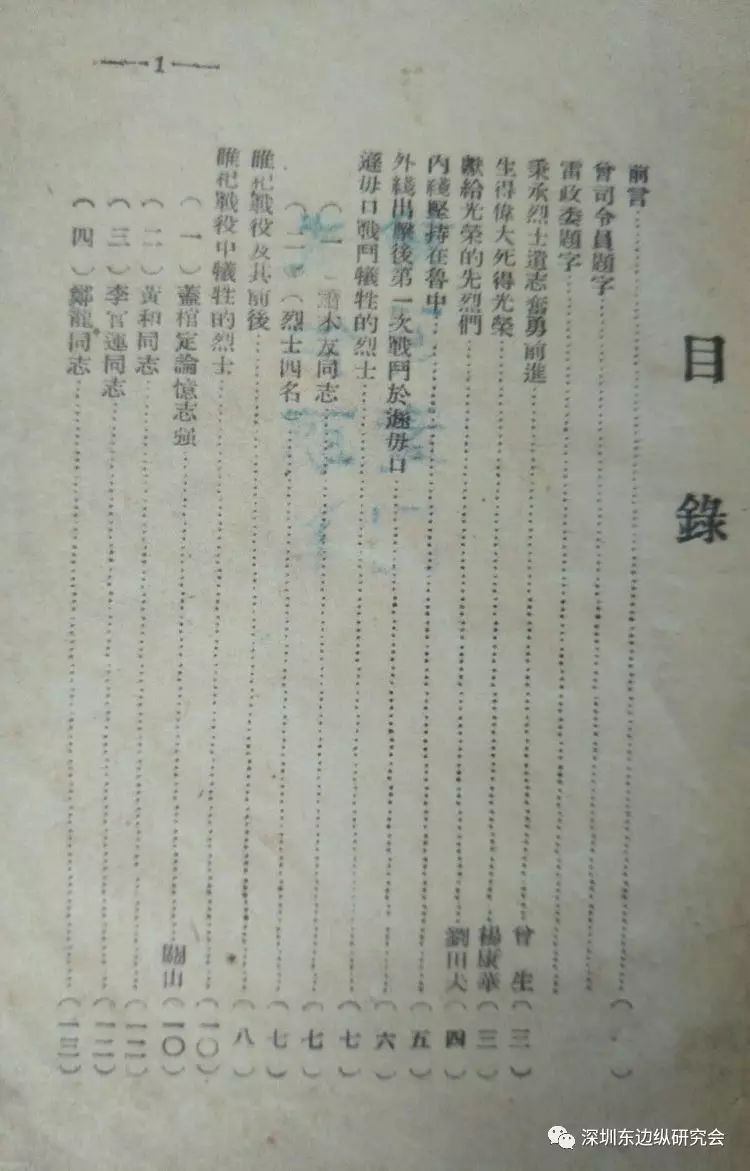 1
目錄
前言
曾司令員題字
雷政委題字
秉承烈士遺志奮勇前進 曾生 (三)
生得偉大死得光榮 楊康華 (三)
獻給光榮的先烈們 劉田夫 (四)
內綫堅持在魯中 (五)
外綫出擊後第一次戰鬥於遜毋口 (六)
遜毋口戰鬥犧牲的烈士 (七)
(一) 木友同志 (七)
(二) (烈士四名) (七)
睢杞戰役及其前後 (八)
睢杞戰役中犧牲的烈士 (一〇)
(一) 蓋棺定論憶志强 山 (一〇)
(二) 黃和同志 (一二)
(三) 李官運同志 (一二)
(四) 鄭龍同志 (一三)
深圳东边纵研究会